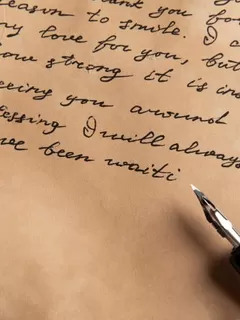 thank you f
reason to smile. I c
my love for you, but
how strong it is in
seeing you around
essing I will always
ve been waiti